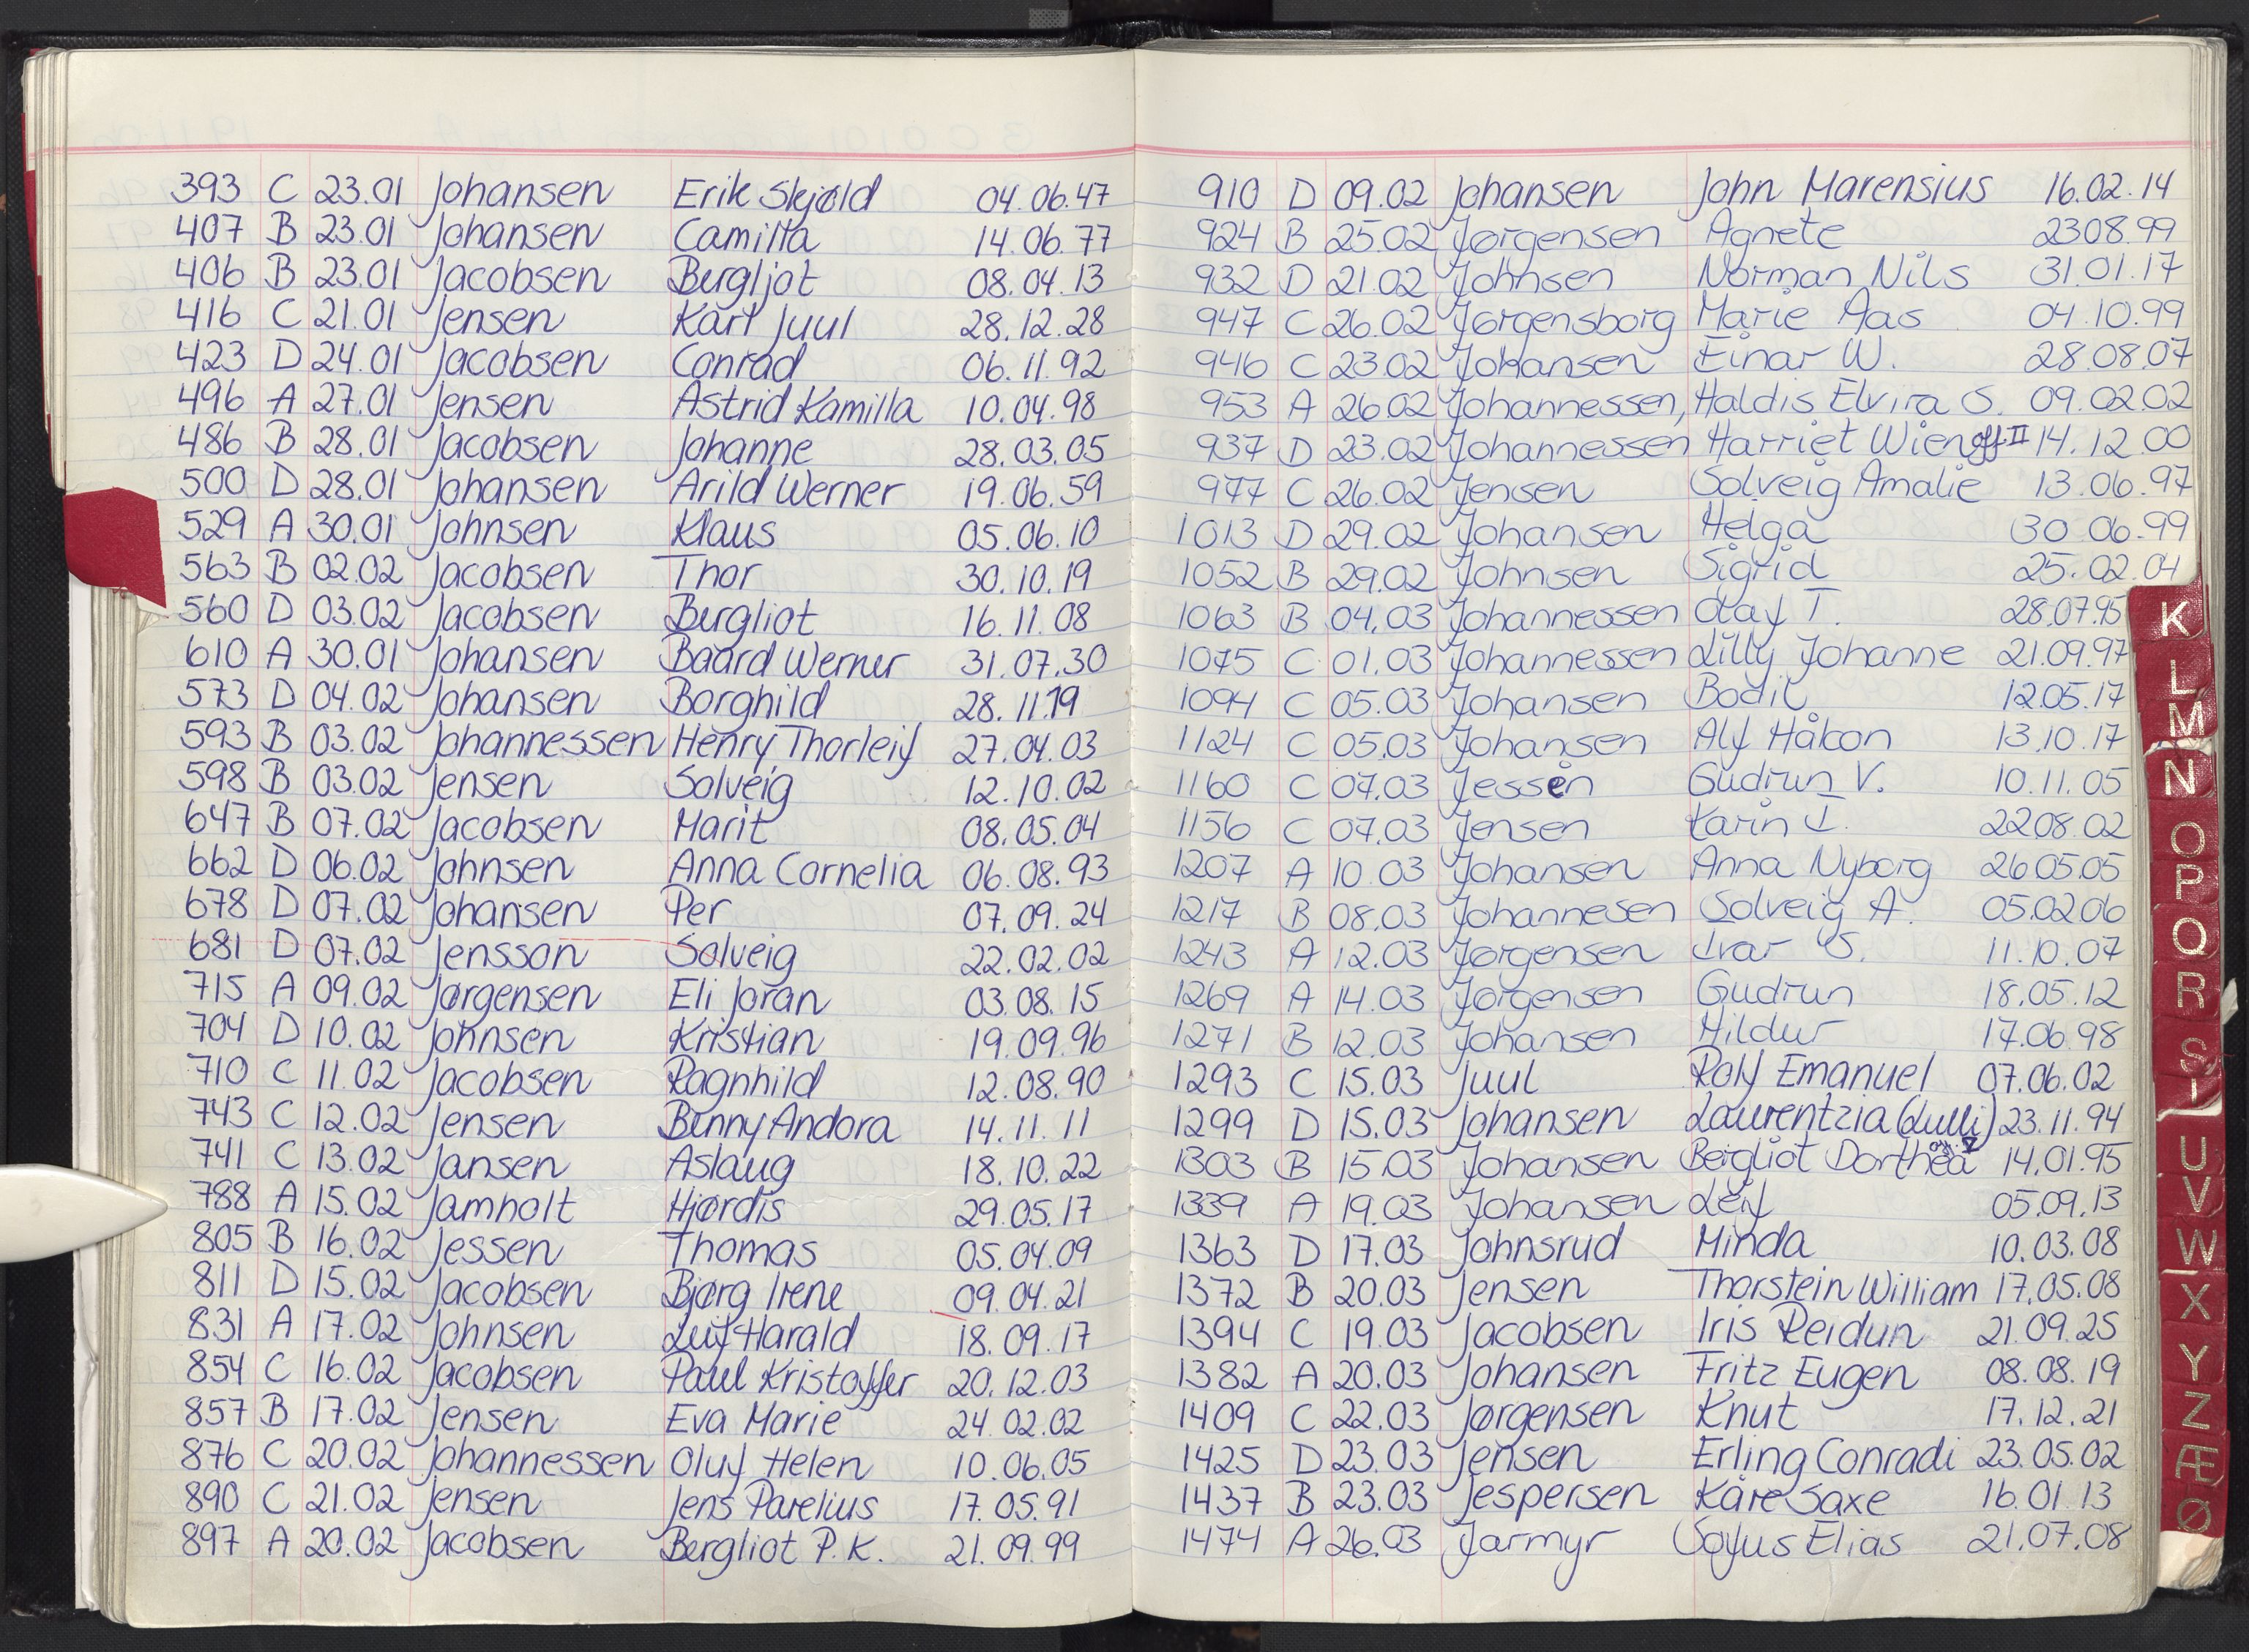 393 C 23.01 Johansen Erik Skjøld 04.06.47
407 B 23.01 Johansen Camilla 14.06.77
406 B 23.01 Jacobsen Bergljot 08.04.13
416 C 21.01 Jensen Karl Juul 28.12.28
423 D 24.01 Jacobsen Conrad 06.11.92
496 A 27.01 Jensen Astrid Kamilla 10.04.98
486 B 28.01 Jacobsen Johanne 28.03.05
500 D 28.01 Johansen Arild Werner 19.06.59
529 A 30.01 Johnsen Klaus 05.06.10
563 B 02.02 Jacobsen Thor 30.10.19
560 D 03.02 Jacobsen Bergliot 16.11.08
610 A 30.01 Johansen Baard Werner 31.07.30
573 D 04.02 Johansen Borghild 28.11.19
593 B 03.02 Johannessen Henry Thorleif 27.04.03
598 B 03.02 Jensen Solveig 12.10.02
647 B 07.02 Jacobsen Marit 08.05.04
662 D 06.02 Johnsen Anna Cornelia 06.08.93
678 D 07.02 Johansen Per 07.09.24
681 D 07.02 Jensson Solveig 22.02.02
715 A 09.02 Jørgensen Eli Joran 03.08.15
704 D 10.02 Johnsen Kristian 19.09.96
710 C 11.02 Jacobsen Ragnhild 12.08.90
743 C 12.02 Jensen Benny Andora 14.11.11
741 C 13.02 Jansen Aslaug 18.10.22
788 A 15.02 Jamholt Hjørdis 29.05.17
805 B 16.02 Jessen Thomas 05.04.09
811 D 15.02 Jacobsen Bjørg Irene 09.04.21
831 A 17.02 Johnsen Leif Harald 18.09.17
854 C 16.02 Jacobsen Paul Kristoffer 20.12.03
857 B 17.02 Jensen Eva Marie 24.02.02
876 C 20.02 Johannessen Oluf Helen 10.06.05
890 C 21.02 Jensen Jens Parelius 17.05.91
897 A 20.02 Jacobsen Bergliot P.K. 21.09.99
910 D 09.02 Johansen John Marensius 16.02.14
924 B 25.02 Jørgensen Agnete 23.08.99
932 D 21.02 Johnsen Norman Nils 31.01.17
947 C 26.02 Jørgensborg Marie Aas 04.10.99
946 C 23.02 Johansen Einar W. 28.08.07
953 A 26.02 Johannessen, Haldis Elvira S. 09.02.02
937 D 23.02 Johannessen Harriet Wien off. II 14.12.00
977 C 26.02 Jensen Solveig Amalie 13.06.97
1013 D 29.02 Johansen Helga 30.06.99
1052 B 29.02 Johnsen Sigrid 25.02.04
1063 B 04.03 Johannessen Olaf T. 28.07.95
1075 C 01.03 Johannessen Lilly Johanne 21.09.97
1094 C 05.03 Johansen Bodil 12.05.17
1124 C 05.03 Johansen Alf Håkon 13.10.17
1160 C 07.03 Jessen Gudrun V. 10.11.05
1156 C 07.03 Jensen Karin I. 22.08.02
1207 A 10.03 Johansen Anna Nyborg 26.05.05
1217 B 08.03 Johannesen Solveig A. 05.02.06
1243 A 12.03 Jørgensen Ivar S. 11.10.07
1269 A 14.03 Jørgensen Gudrun 18.05.12
1271 B 12.03 Johansen Hildur 17.06.98
1293 C 15.03 Juul Rolf Emanuel 07.06.02
1299 D 15.03 Johansen Laurentzia (Lulli) 23.11.94
1303 B 15.03 Johansen Bergliot Dorthea 14.01.95
1339 A 19.03 Johansen Leif 05.09.13
1363 D 17.03 Johnsrud Minda 10.03.08
1372 B 20.03 Jensen Thorstein William 17.05.08
1394 C 19.03 Jacobsen Iris Reidun 21.09.25
1382 A 20.03 Johansen Fritz Eugen 08.08.19
1409 C 22.03 Jørgensen Knut 17.12.21
1425 D 23.03 Jensen Erling Conradi 23.05.02
1437 B 23.03 Jespersen Kåre Saxe 16.01.13
1474 A 26.03 Jarmyr Sofus Elias 21.07.08
K
L
M
N
O
P
Q
R
S
T
U
V
W
X
Y
Z
Æ
Ø